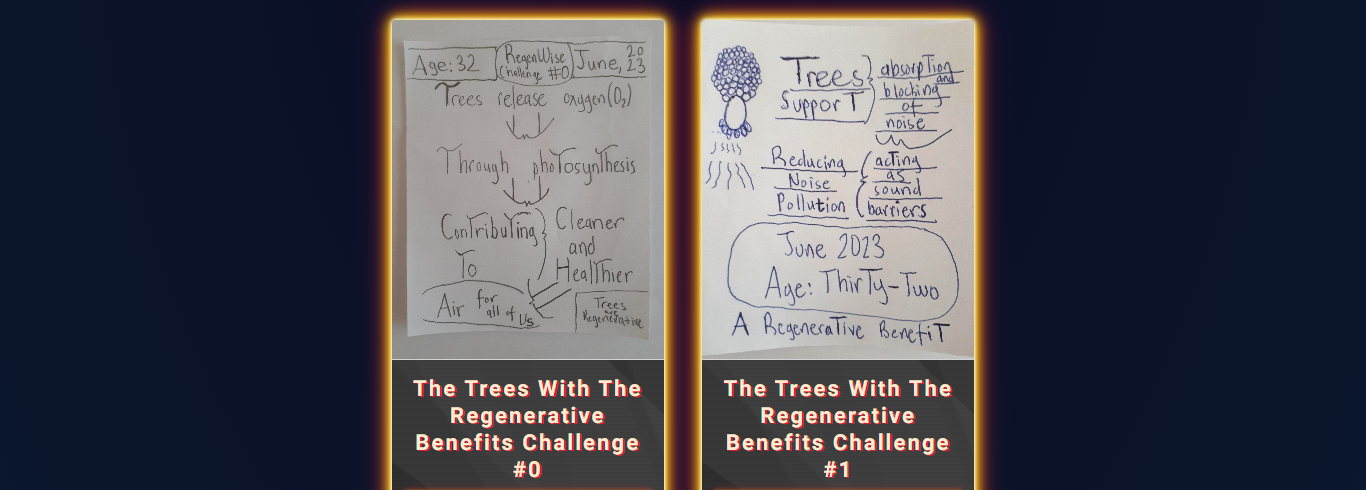 Age: 32
RegenWise
Challenge #0
June, 2023
Trees release oxygen (O2)
Through photosynthesis
Contributing
To
Cleaner
and
Healthier
Air for
all of Us
Trees
are
Regenerative
The Trees With The
Regenerative
Benefits Challenge
#0
Trees
Support
absorption
and
blocking
of
noise
Reducing
Noise
Pollution
acting
as
sound
barriers
June 2023
Age: Thirty-Two
A Regenerative Benefit
The Trees With The
Regenerative
Benefits Challenge
#1